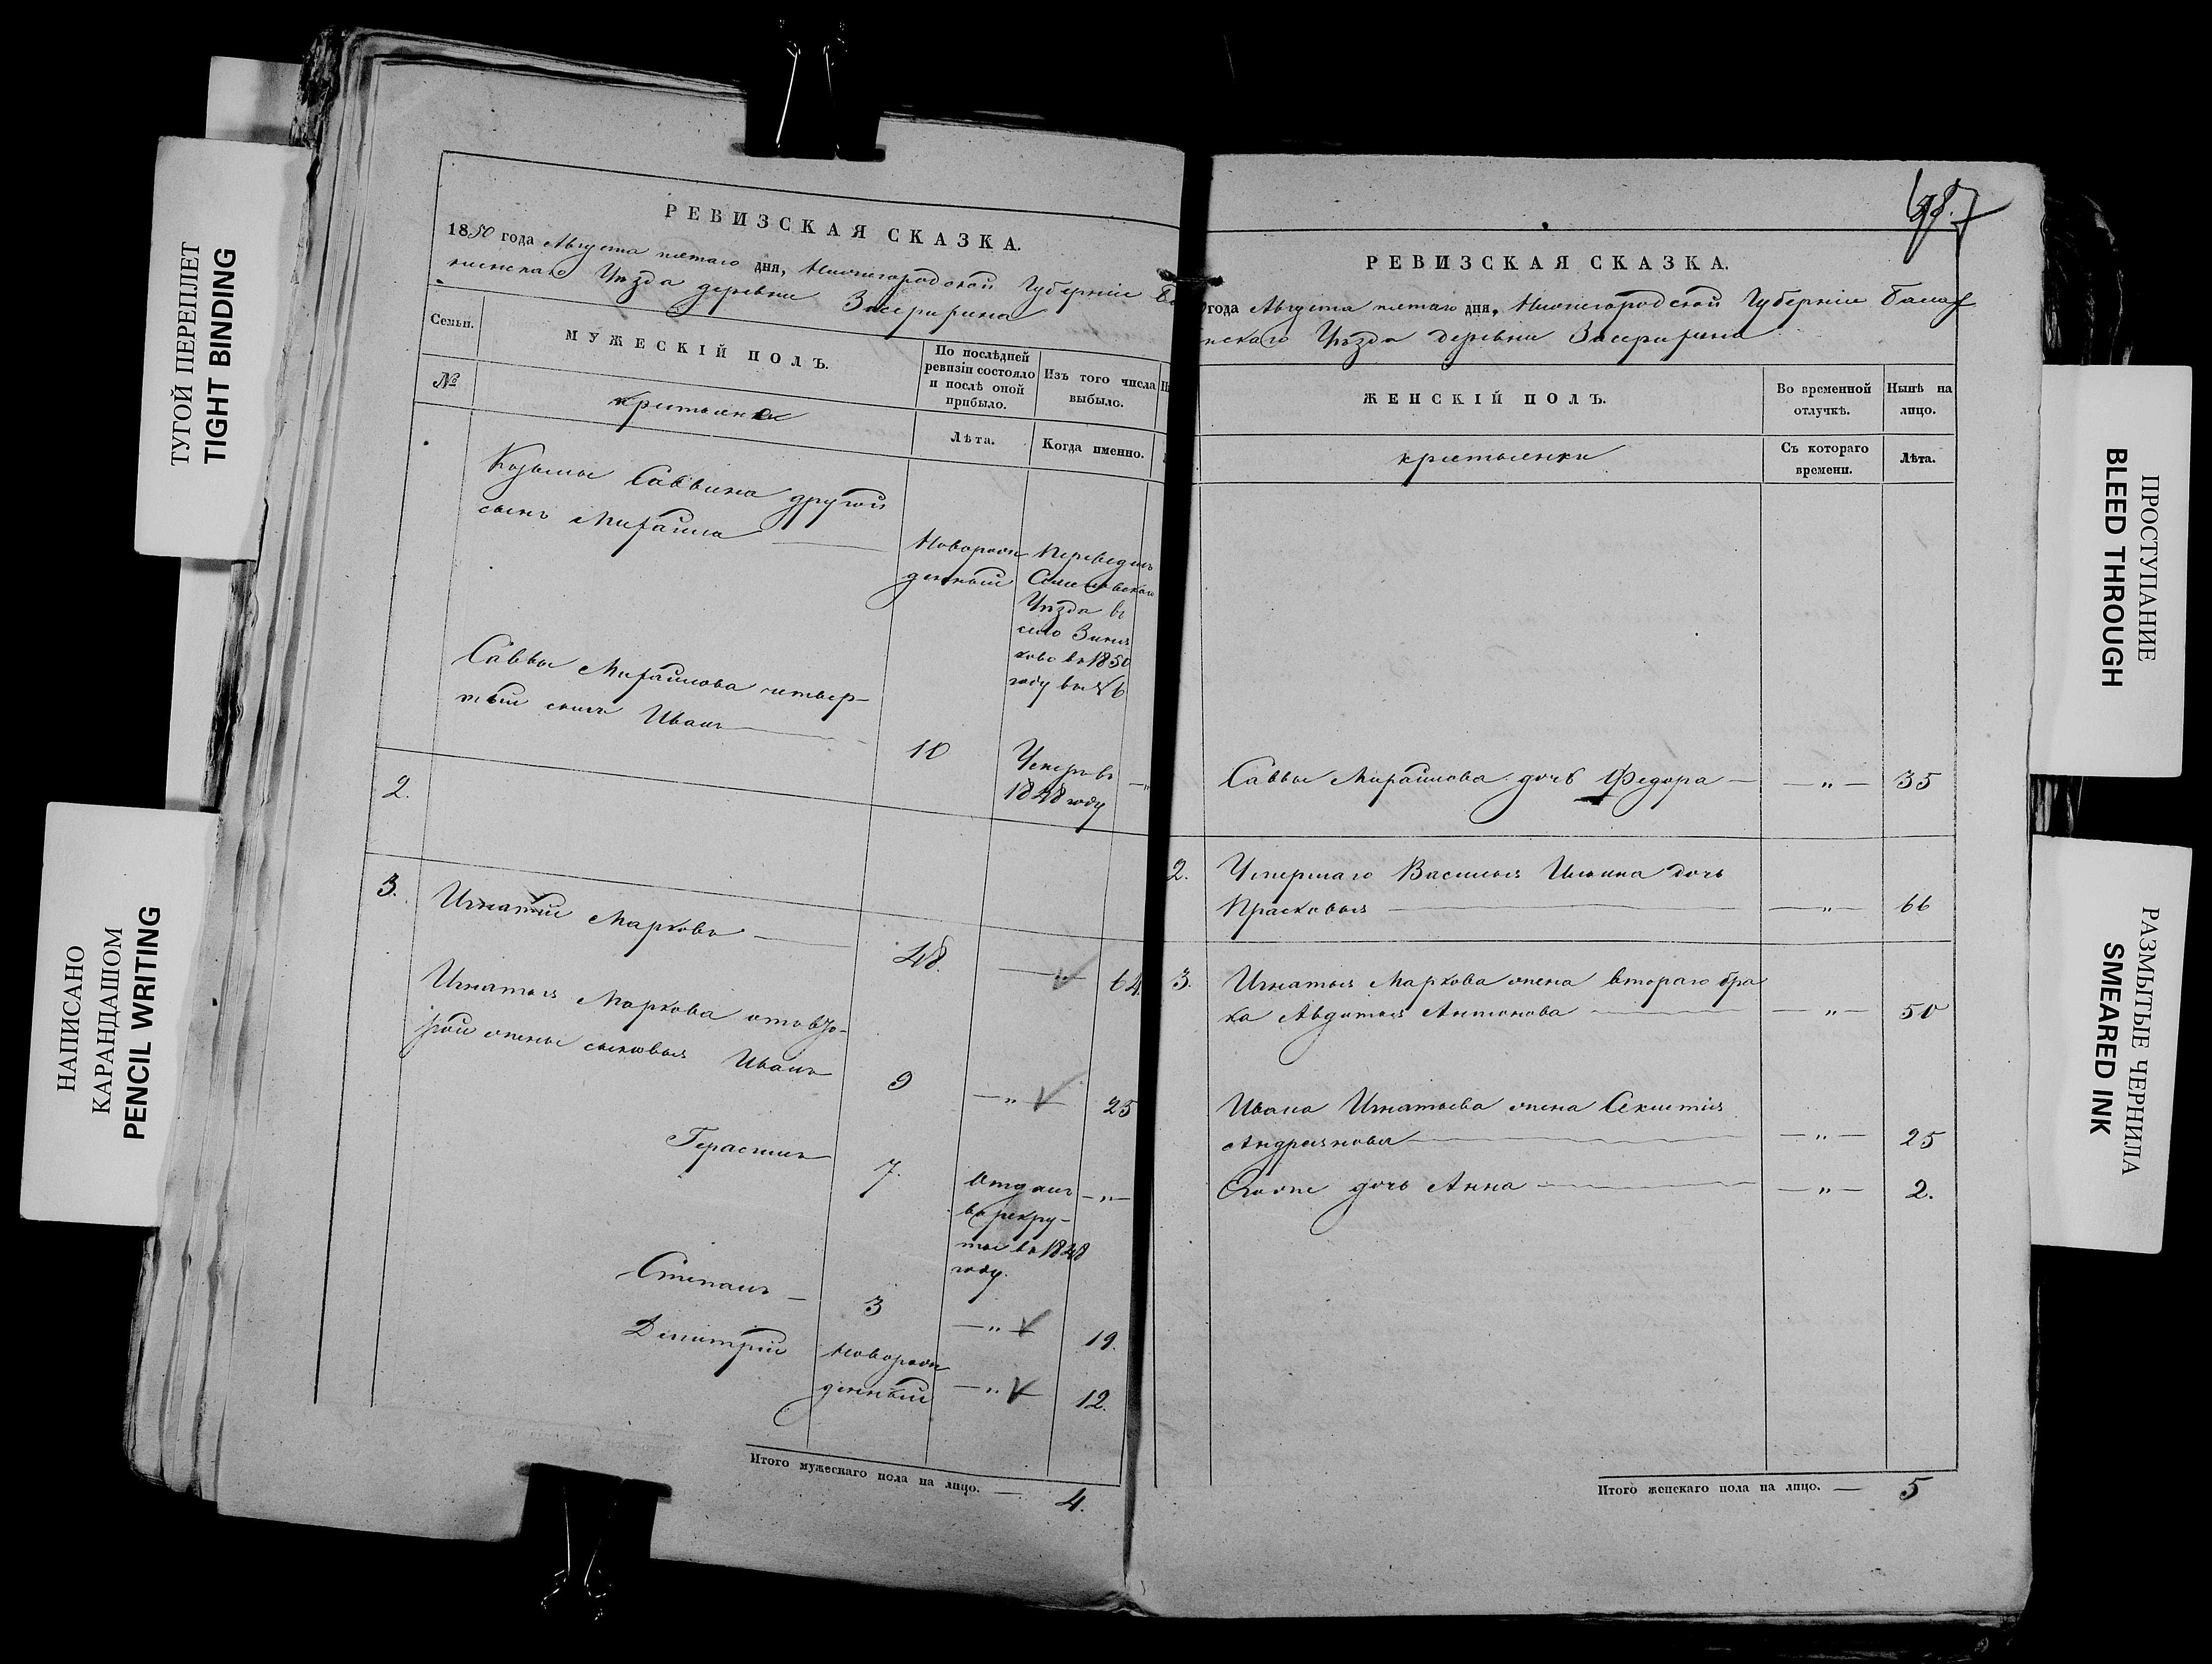 ТУГОЙ ПЕРЕПЛЕТ
TIGHT BINDING
НАПИСАНО
КАРАНДАШОМ
PENCIL WRITING
РЕВИЗСКАЯ СКАЗКА.
1850 года Августа пятаго дня, Нижегородской Губерніи Ба
нинскаго Уѣзда деревни
Семьи.
МУЖЕСКІЙ ПОЛЪ.
По послѣдней
ревизіи состояло
и послѣ оной
прибыло.
Изъ того числа
выбыло.
№
крестьяне
Лѣта.
Когда именно.
Козьмы Саввина другой
сынъ Михайла
Новорож
денный
Переведенъ
Семеновскаго
Уѣзда въ
село
ково въ 1850
году
Саввы Михайлова четвер-
тый сынъ Иванъ
10
Умеръ въ
1848 году
—„
2.
3.
Игнатій Марковъ
48.
—„—
64.
Игнатья Маркова отъ вто-
рой жены сыновья Иванъ
9
—„—
25
Герасимъ
7.
Отданъ
въ рекру-
ты въ 1848
году.
—„—
Степанъ
3
—„—
19.
Димитрій
Новорож
денный
—„—
12.
Итого мужескаго пола на лицо. — 4.
98.
РЕВИЗСКАЯ СКАЗКА.
года Августа пятаго дня, Нижегородской Губерніи Балах
нскаго Уѣзда деревни
ЖЕНСКІЙ ПОЛЪ.
Во временной
отлучкѣ.
Нынѣ на
лицо.
крестьянки
Съ котораго
времени.
Лѣта.
Саввы Михайлова дочь Федора — —„— 35
2. Умершаго Василья Ильина дочь
Прасковья —„— 66
3. Игнатья Маркова жена втораго бра
ка Авдотья Антонова —„— 50
Ивана Игнатьева жена Секлетія
Андреянова —„— 25
Егоже дочь Анна —„— 2.
Итого женскаго пола на лицо. — 5
ПРОСТУПАНИЕ
BLEED THROUGH
РАЗМЫТЫЕ ЧЕРНИЛА
SMEARED INK